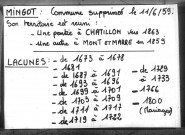 MINGOT : Commune supprimée le 11/6/59.
Son territoire est réuni :
- Une partie à CHATILLON vers 1863
- une autre à MONT ST MARRE en 1859
LACUNES : - de 1673 à 1678
- 1681
- de 1687 à 1691
- de 1693 à 1696
- de 1699 à 1701
- de 1709 à 1710
- de 1711 à 1717
- de 1719 à 1722
- de 1729 à 1733
- 1766
- 1800